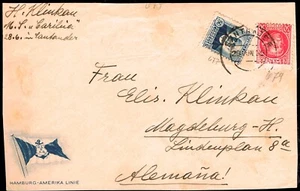 H. Klinkau
M.S. "Caribia"
28.6. in Santander
Frau
Elis. Klinkau
Magdeburg-H.
Lindenplan 8a
Alemaña!
HAMBURG-AMERIKA LINIE